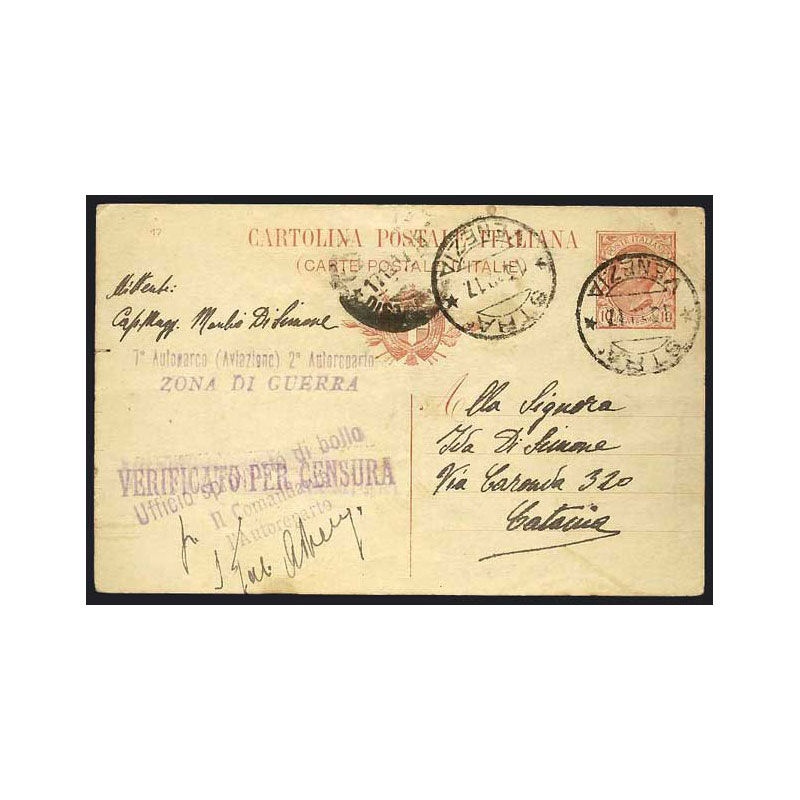 17
CARTOLINA POSTALE ITALIANA
(CARTE POSTALE D'ITALIE)
POSTE ITALIANE
STRA
VENEZIA
17
STRA
VENEZIA
Mittente:
Cap. Magg. Manlio Di Simone
7° Autoparco (Aviazione) 2° Autoreparto
ZONA DI GUERRA
Alla Signora
Ida Di Simone
Via Caronda 320
Catania
Ufficio sprovvisto di bollo
VERIFICATO PER CENSURA
Il Comandante
l'Autoreparto